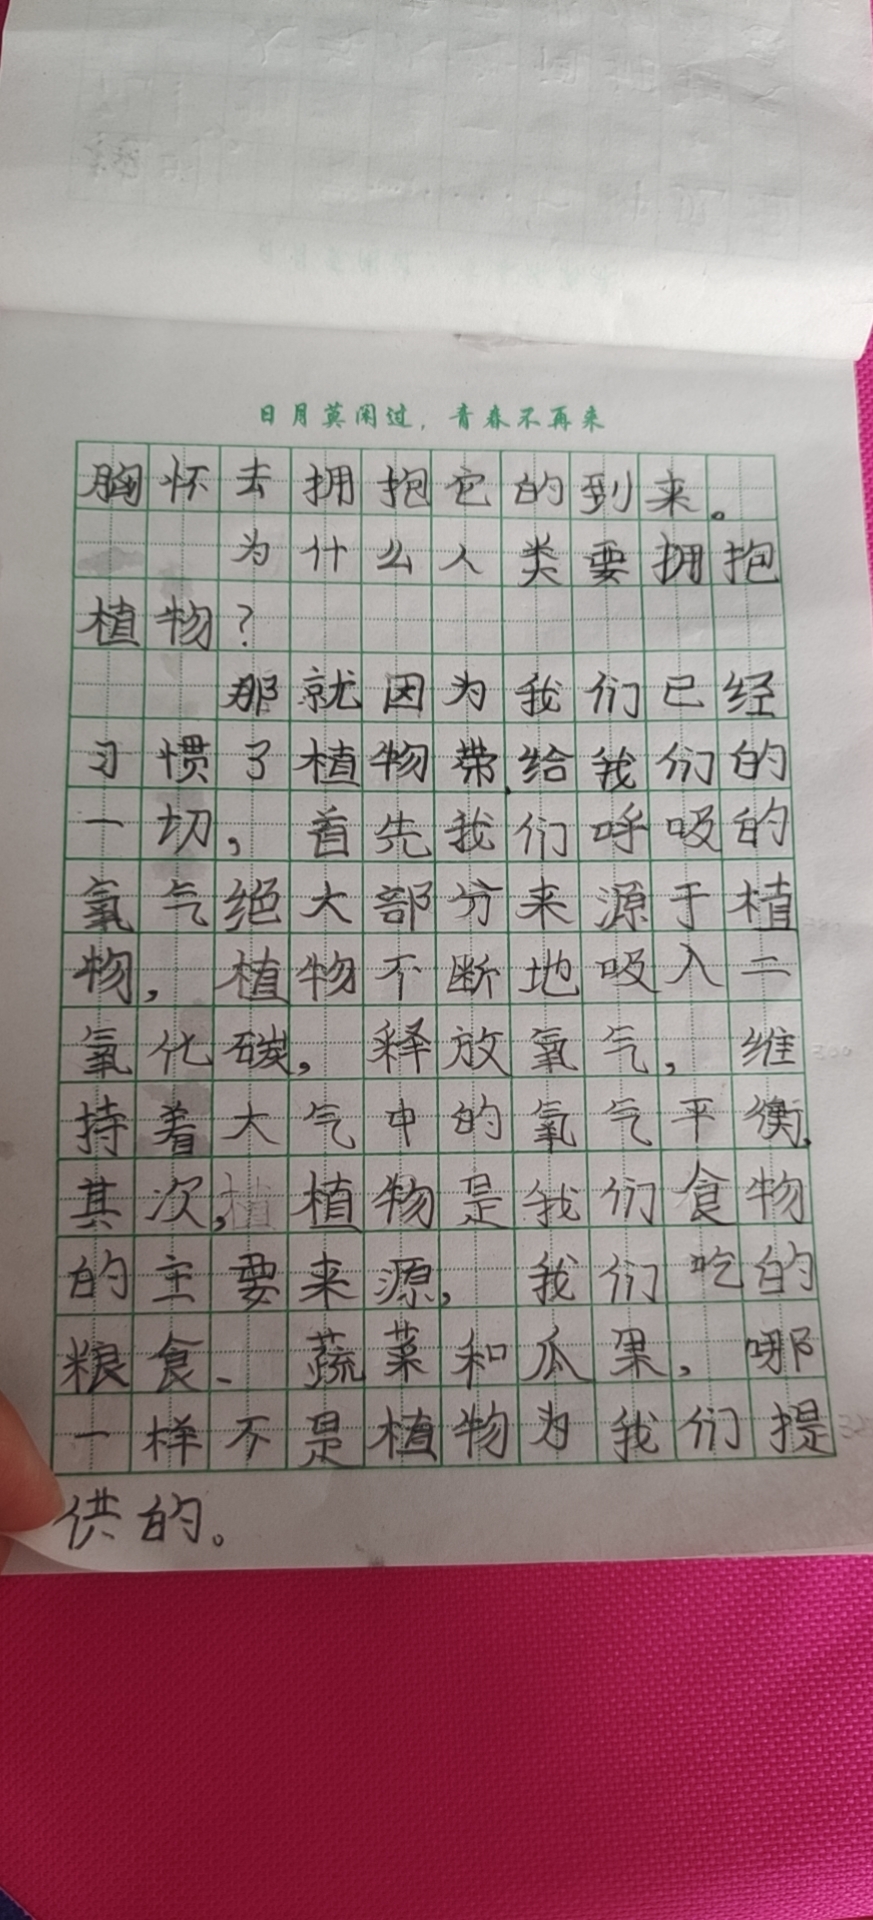 日月莫闲过，青春不再来
胸怀去拥抱它的到来。
为什么人类要拥抱
植物？
那就因为我们已经
习惯了植物带给我们的
一切，首先我们呼吸的
氧气绝大部分来源于植
物，植物不断地吸入二
氧化碳，释放氧气，维
持着大气中的氧气平衡，
其次，植物是我们食物
的主要来源，我们吃的
粮食、蔬菜和瓜果，哪
一样不是植物为我们提
供的。